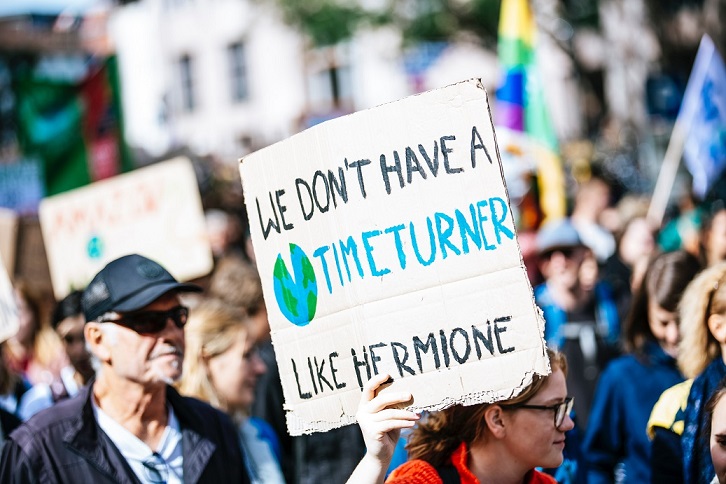 WE DON'T HAVE A
TIMETURNER
LIKE HERMIONE